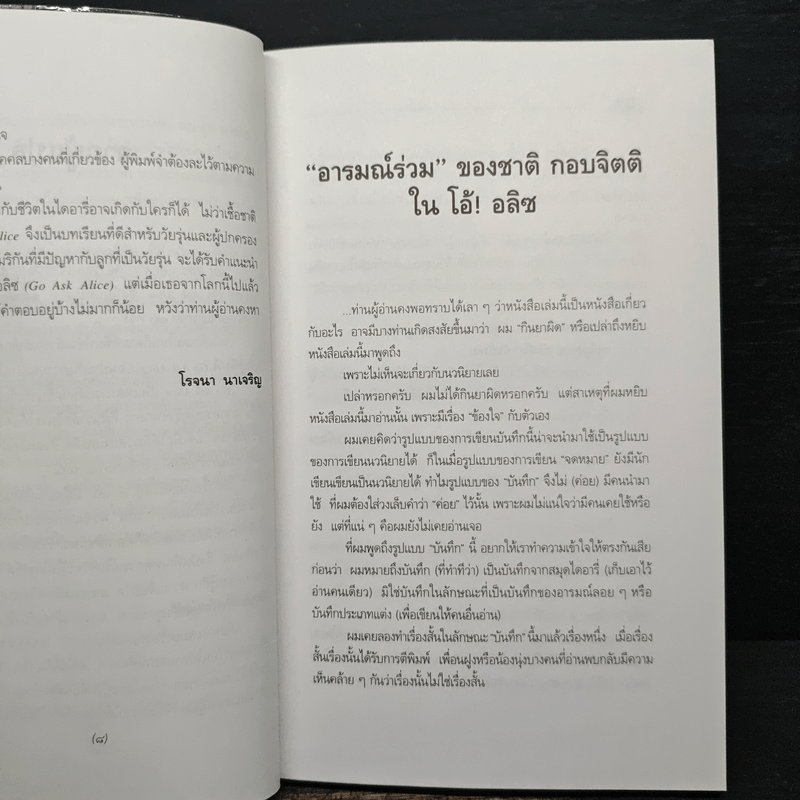 จ
คคลบางคนที่เกี่ยวข้อง ผู้พิมพ์จำต้องละไว้ตามความ
กับชีวิตในไดอารี่อาจเกิดกับใครก็ได้ ไม่ว่าเชื้อชาติ
lice จึงเป็นบทเรียนที่ดีสำหรับวัยรุ่นและผู้ปกครอง
มริกันที่มีปัญหากับลูกที่เป็นวัยรุ่น จะได้รับคำแนะนำ
อลิซ (Go Ask Alice) แต่เมื่อเธอจากโลกนี้ไปแล้ว
คำตอบอยู่บ้างไม่มากก็น้อย หวังว่าท่านผู้อ่านคงหา
โรจนา นาเจริญ
(๘)
“อารมณ์ร่วม” ของชาติ กอบจิตติ
ใน โอ้! อลิซ
...ท่านผู้อ่านคงพอทราบได้เลา ๆ ว่าหนังสือเล่มนี้เป็นหนังสือเกี่ยว
กับอะไร อาจมีบางท่านเกิดสงสัยขึ้นมาว่า ผม “กินยาผิด” หรือเปล่าถึงหยิบ
หนังสือเล่มนี้มาพูดถึง
เพราะไม่เห็นจะเกี่ยวกับนวนิยายเลย
เปล่าหรอกครับ ผมไม่ได้กินยาผิดหรอกครับ แต่สาเหตุที่ผมหยิบ
หนังสือเล่มนี้มาอ่านนั้น เพราะมีเรื่อง “ข้องใจ” กับตัวเอง
ผมเคยคิดว่ารูปแบบของการเขียนบันทึกนี้น่าจะนำมาใช้เป็นรูปแบบ
ของการเขียนนวนิยายได้ ก็ในเมื่อรูปแบบของการเขียน “จดหมาย” ยังมีนัก
เขียนเขียนเป็นนวนิยายได้ ทำไมรูปแบบของ “บันทึก” จึงไม่ (ค่อย) มีคนนำมา
ใช้ ที่ผมต้องใส่วงเล็บคำว่า “ค่อย” ไว้นั้น เพราะผมไม่แน่ใจว่ามีคนเคยใช้หรือ
ยัง แต่ที่แน่ ๆ คือผมยังไม่เคยอ่านเจอ
ที่ผมพูดถึงรูปแบบ “บันทึก” นี้ อยากให้เราทำความเข้าใจให้ตรงกันเสีย
ก่อนว่า ผมหมายถึงบันทึก (ที่ทำทีว่า) เป็นบันทึกจากสมุดไดอารี่ (เก็บเอาไว้
อ่านคนเดียว) มิใช่บันทึกในลักษณะที่เป็นบันทึกของอารมณ์ลอย ๆ หรือ
บันทึกประเภทแต่ง (เพื่อเขียนให้คนอื่นอ่าน)
ผมเคยลองทำเรื่องสั้นในลักษณะ “บันทึก” นี้มาแล้วเรื่องหนึ่ง เมื่อเรื่อง
สั้นเรื่องนั้นได้รับการตีพิมพ์ เพื่อนฝูงหรือน้องนุ่งบางคนที่อ่านพบกลับมีความ
เห็นคล้าย ๆ กันว่าเรื่องนั้นไม่ใช่เรื่องสั้น